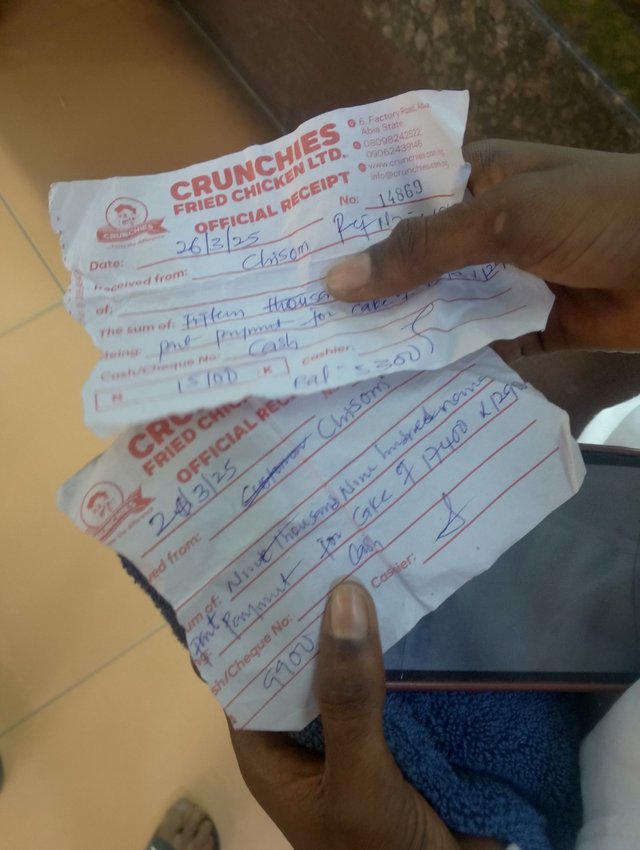 CRUNCHIES
FRIED CHICKEN LTD.
OFFICIAL RECEIPT
6, Factory Road, Aba
Abia State
08098242522
09062439146
www.crunchies.com.ng
info@crunchies.com
CRUNCHIES
No: 14869
Date: 26/3/25
Received from: Chisom
of:
The sum of: Fifteen thousan
Being: part payment for cake of
Cash/Cheque No: Cash
Cashier:
N 15100 K
Bal = 5300
CRU
FRIED CHICK
OFFICIAL REC
3/25
ved from: Customer Chisom
um of: Nine thousand Nine hundred naira
part payment for cake of 17400 x 12900
sh/Cheque No: Cash
Cashier:
9900